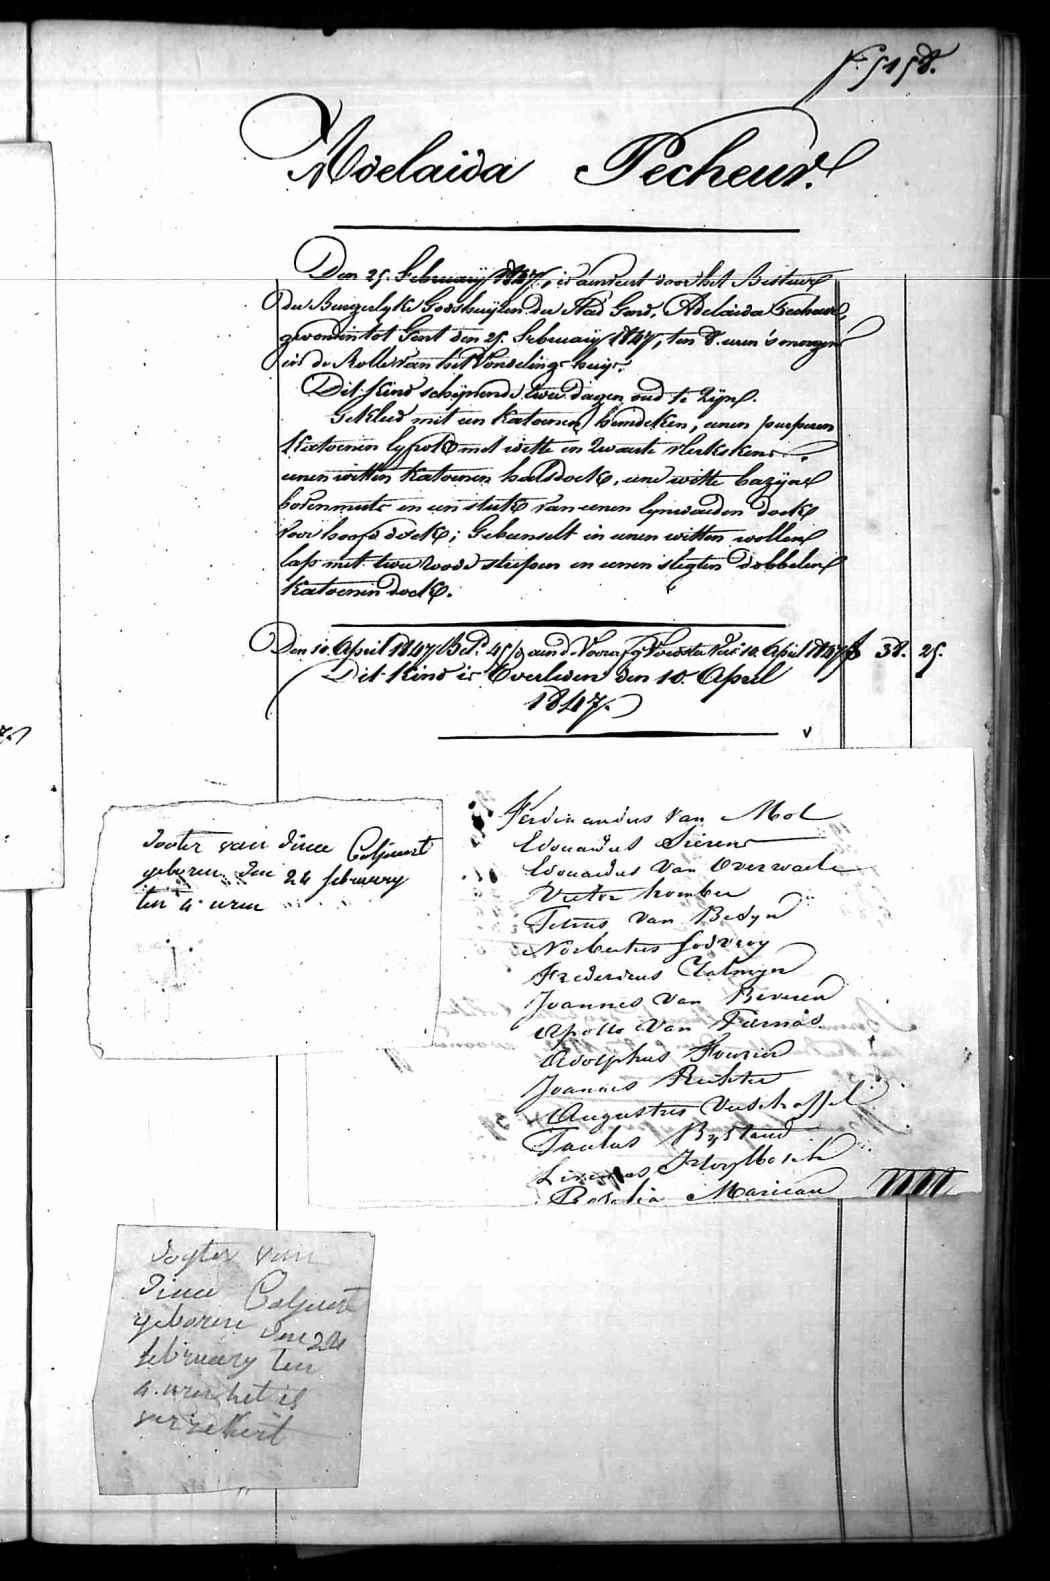 Adelaïda Pecheur.
Den 25. February 1847, is aenveert door het Bestuer
der Burgerlyke Godshuyzen der Stad Gend, Adelaïda Pecheur,
gevonden tot Gent den 25. February 1847, ten 8. uren 's morgens
in de Rolle van het Vondelingshuys.
Dit Kind schynende twee dagen oud te zyn.
Gekleed met een katoenen hemdeken, eenen purperen
katoenen lyfrok met witte en zwarte vlekskens
eenen witten katoenen halsdoek, eene witte bazyne
bovenmuts en een stuk van eenen lynwaeden doek
voor hoofddoek; Gebunselt in eenen witten wollen
lap met twee roode streepen en eenen slegten dobbelen
katoenen doek.
Den 10. April 1847 Bet. aend. Voorz. Voedster 10. April 1847 38. 25.
Dit Kind is Overleden den 10. April
1847.
Ferdinandus Van Mol
Edouardus Sierens
Edouardus Van Overwaele
Victor
Petrus Van
Norbertus Godvroy
Fredericus
Joannes Van Beveren
Apollo Van
Adolphus Fourier
Joannes Richter
Augustus Verschaffel
Paulus Bystand
Livinus
Rosalia Mariean
dogter van
geboren den 24 february
ten 4 uren
dogter van
geboren den 24
february ten
4. uren het is
verzekert